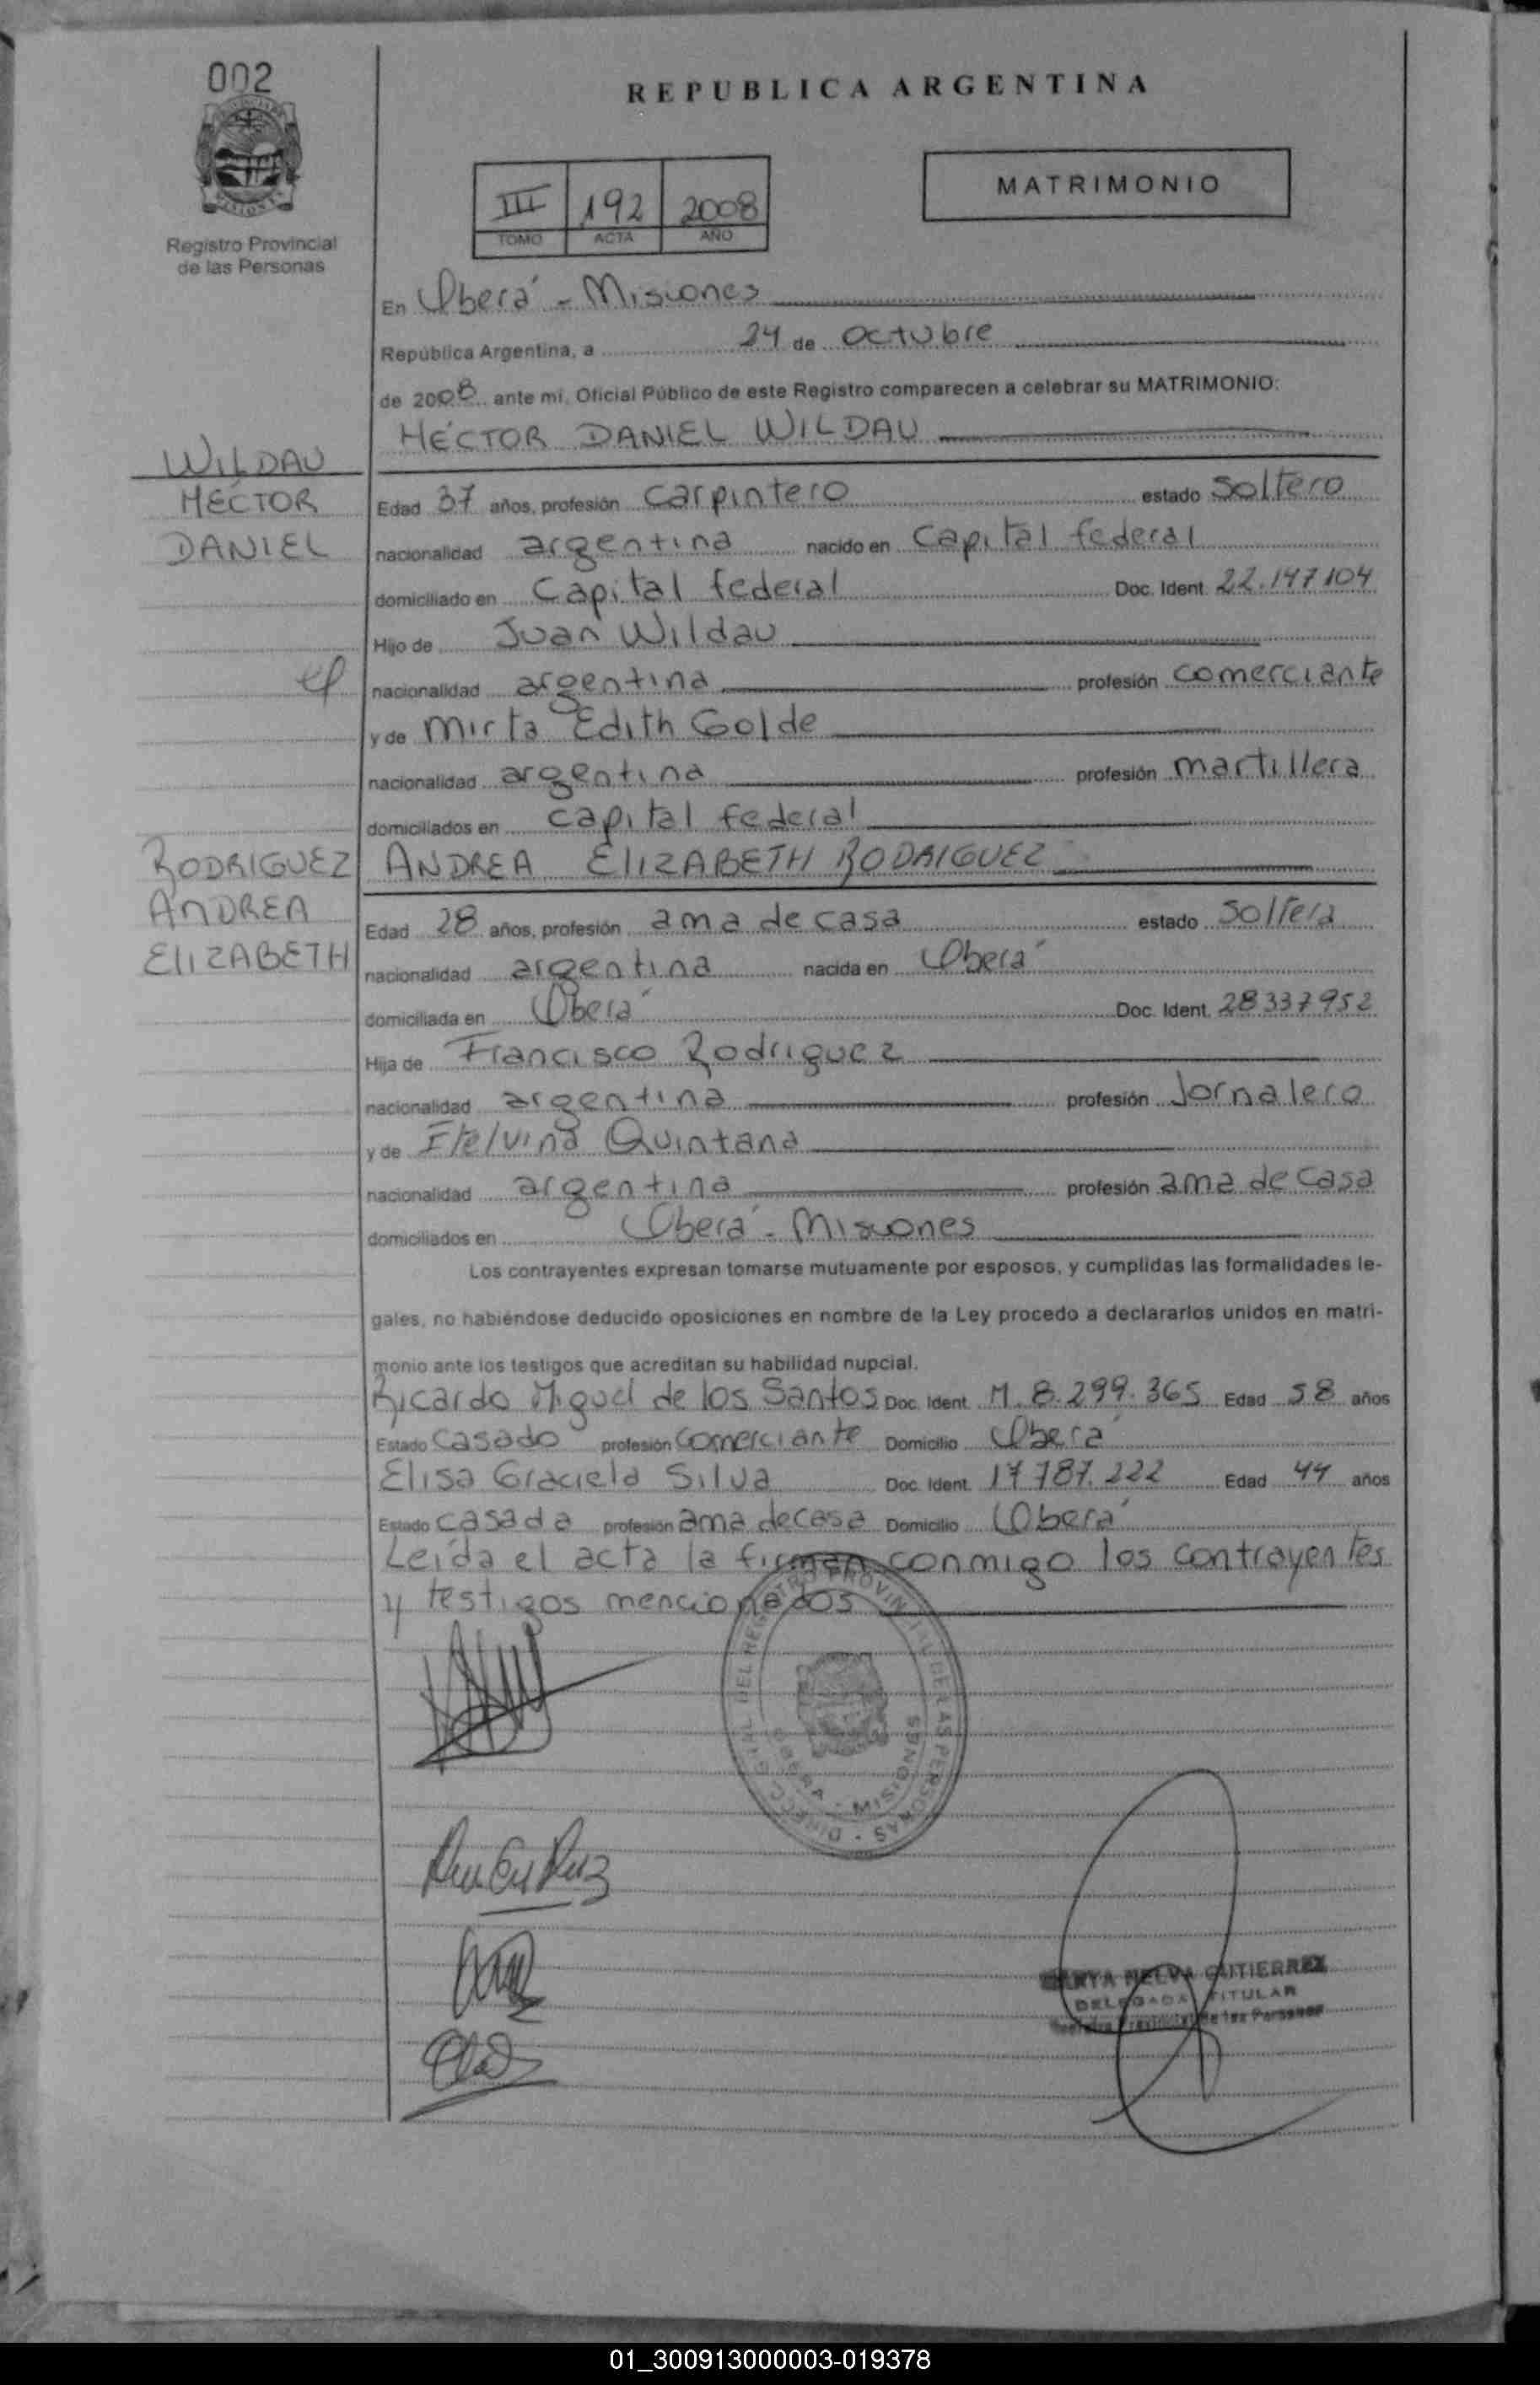 002
REPUBLICA ARGENTINA
III 192 2008
TOMO ACTA AÑO
MATRIMONIO
Registro Provincial
de las Personas
En Oberá - Misiones
República Argentina, a 24 de octubre
de 2008 ante mí, Oficial Público de este Registro comparecen a celebrar su MATRIMONIO:
HÉCTOR DANIEL WILDAU
WILDAU
HÉCTOR
DANIEL
Edad 37 años, profesión carpintero estado soltero
nacionalidad argentina nacido en Capital federal
domiciliado en Capital federal Doc. Ident. 22.147104
Hijo de Juan Wildau
nacionalidad argentina profesión comerciante
y de Mirta Edith Golde
nacionalidad argentina profesión martillera
domiciliados en capital federal
RODRIGUEZ
ANDREA
ELIZABETH
ANDREA ELIZABETH RODRIGUEZ
Edad 28 años, profesión ama de casa estado soltera
nacionalidad argentina nacida en Oberá
domiciliada en Oberá Doc. Ident. 28337952
Hija de Francisco Rodriguez
nacionalidad argentina profesión Jornalero
y de Etelvina Quintana
nacionalidad argentina profesión ama de casa
domiciliados en Oberá - Misiones
Los contrayentes expresan tomarse mutuamente por esposos, y cumplidas las formalidades le-
gales, no habiéndose deducido oposiciones en nombre de la Ley procedo a declararlos unidos en matri-
monio ante los testigos que acreditan su habilidad nupcial.
Ricardo Miguel de los Santos Doc. Ident. M. 8.299.365 Edad 58 años
Estado Casado profesión Comerciante Domicilio Oberá
Elisa Graciela Silva Doc. Ident. 17.787.222 Edad 44 años
Estado casada profesión ama de casa Domicilio Oberá
Leída el acta la firman conmigo los contrayentes
y testigos mencionados
DIRECC. GRAL. DEL REGISTRO PROVINCIAL DE LAS PERSONAS
OBERA - MISIONES
NELVA GUTIERREZ
DELEGADA TITULAR
Registro Provincial de las Personas
01_300913000003-019378